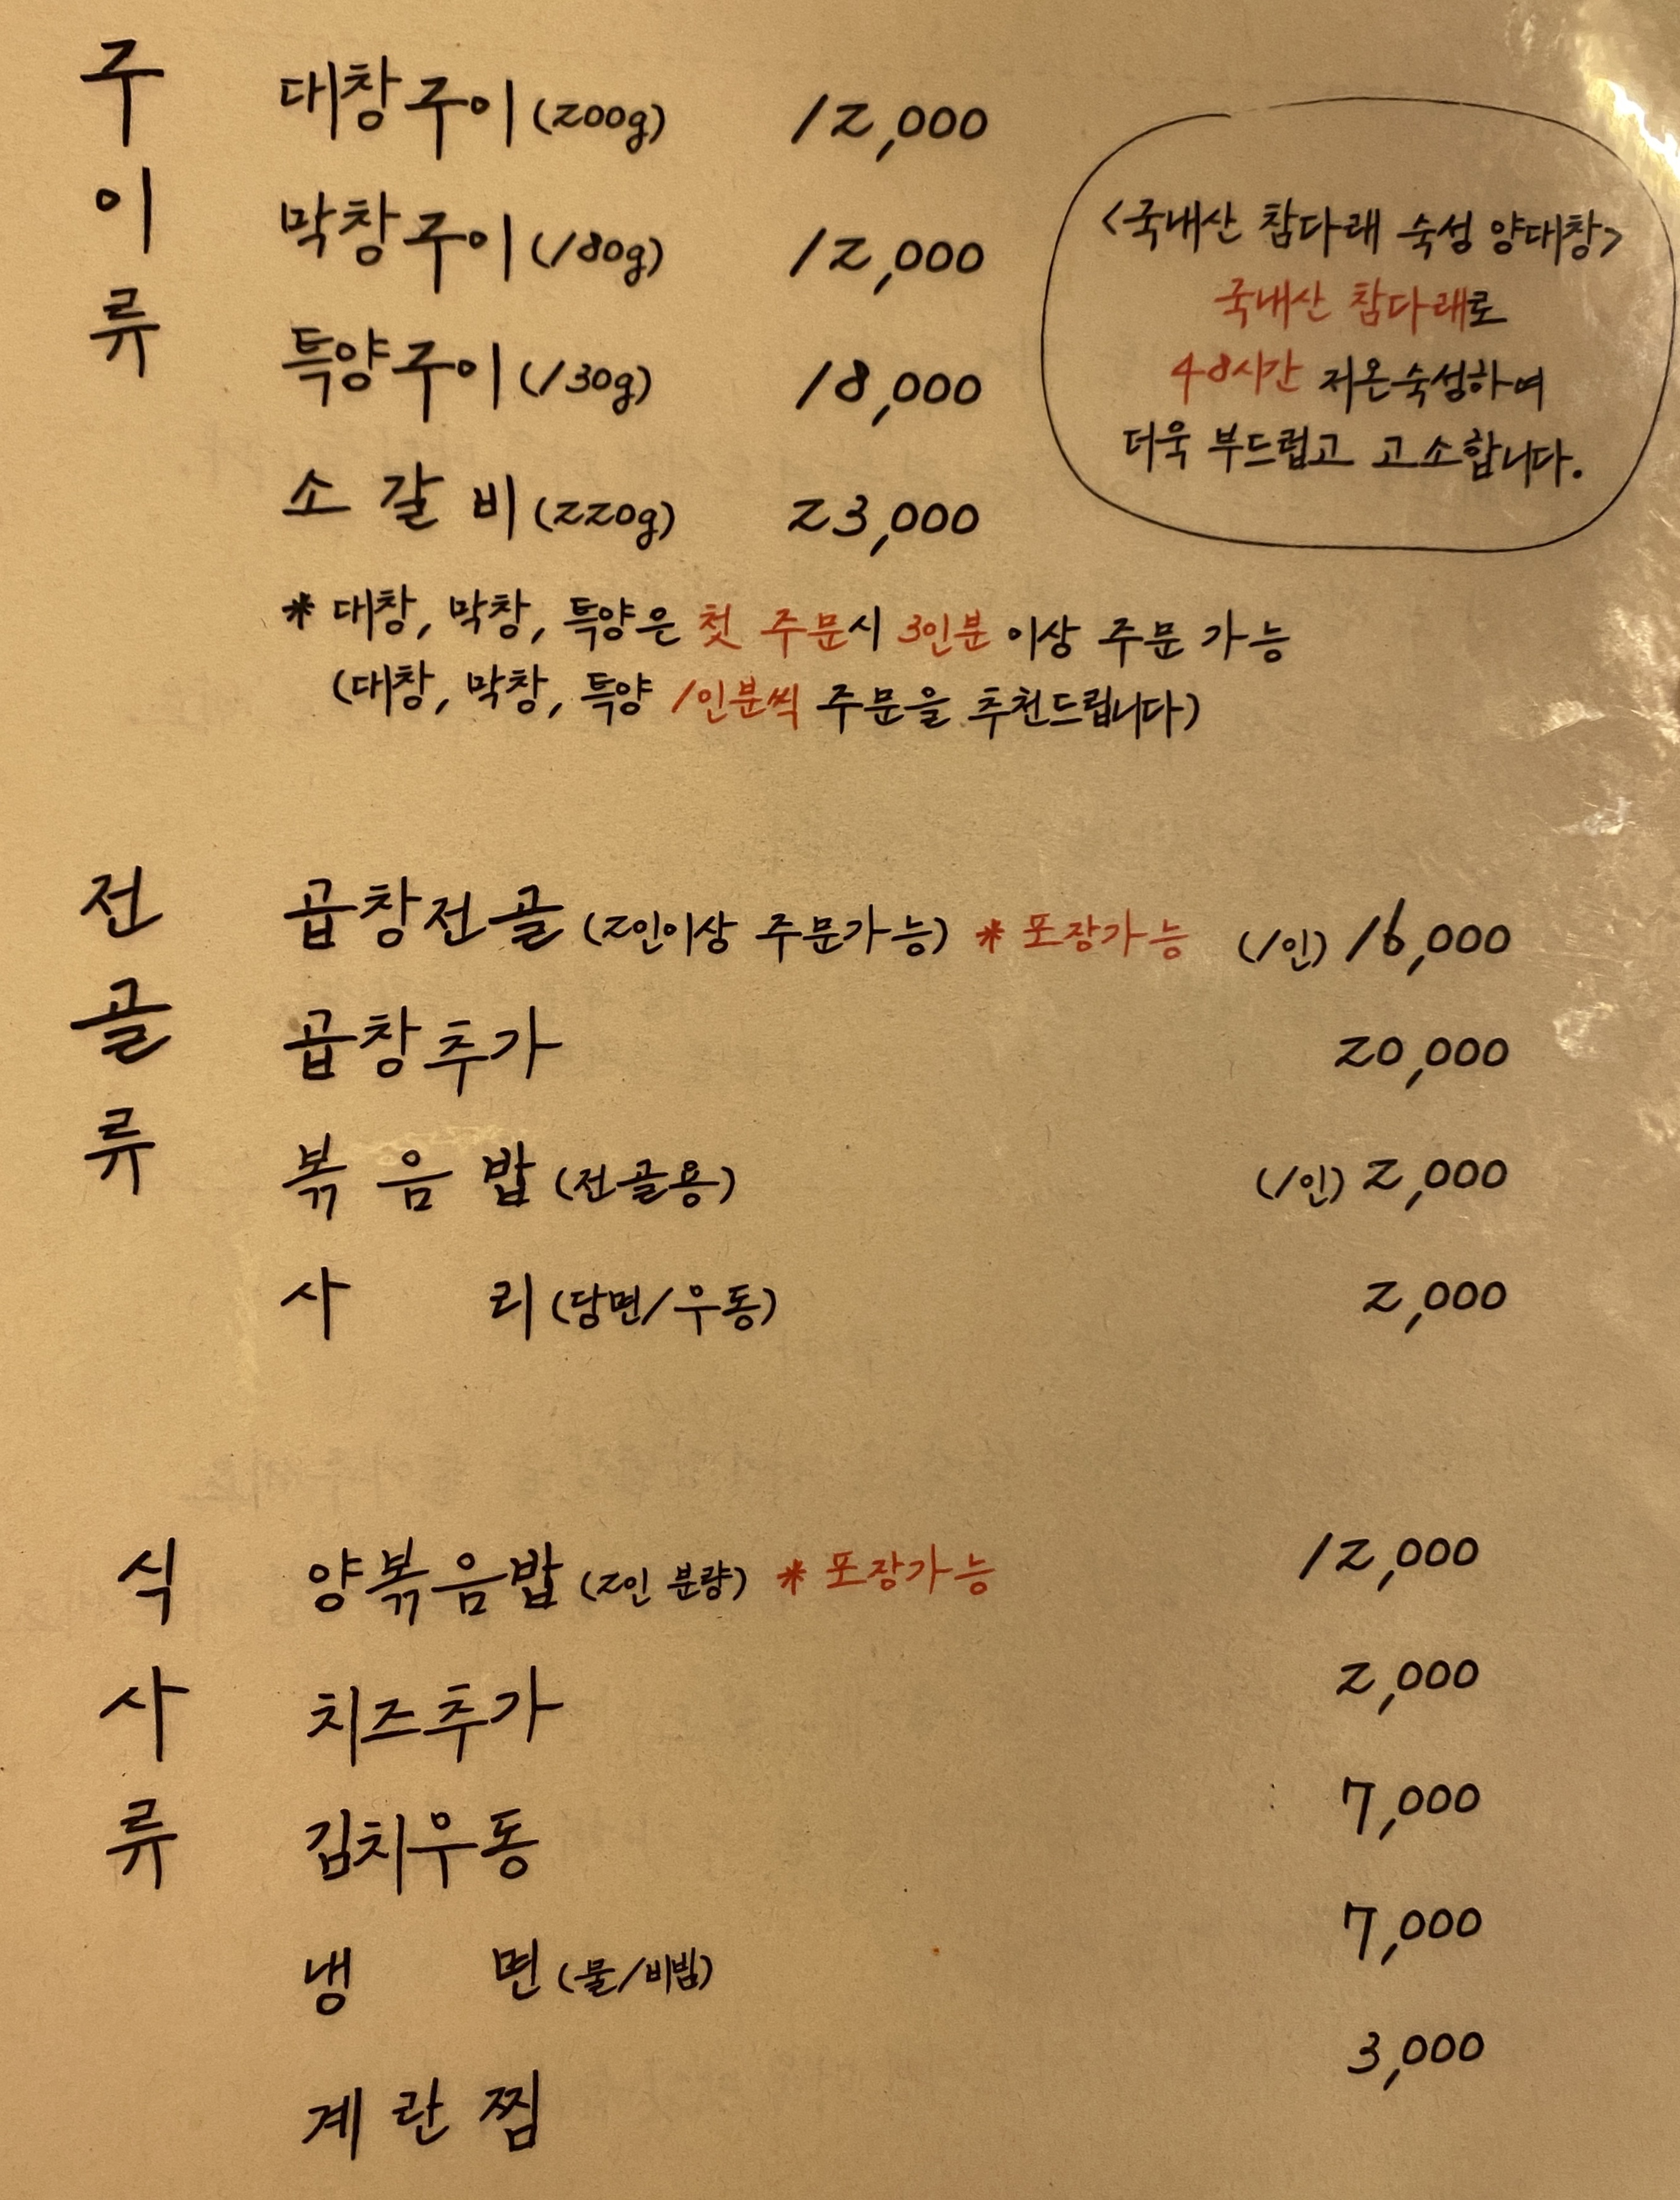 구이류
대창구이(200g) 12,000
막창구이(180g) 12,000
특양구이(130g) 18,000
소갈비(220g) 23,000
<국내산 참다래 숙성 양대창>
국내산 참다래로
48시간 저온숙성하여
더욱 부드럽고 고소합니다.
* 대창, 막창, 특양은 첫 주문시 3인분 이상 주문 가능
(대창, 막창, 특양 1인분씩 주문을 추천드립니다)
전골류
곱창전골(2인이상 주문가능) * 포장가능 (1인) 16,000
곱창추가 20,000
볶음밥(전골용) (1인) 2,000
사리(당면/우동) 2,000
식사류
양볶음밥(2인 분량) * 포장가능 12,000
치즈추가 2,000
김치우동 7,000
냉면(물/비빔) 7,000
계란찜 3,000